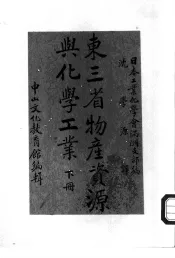 日本工業化學會滿洲支部編
沈學源譯
東三省物産資源
與化學工業 下冊
中山文化教育館編輯